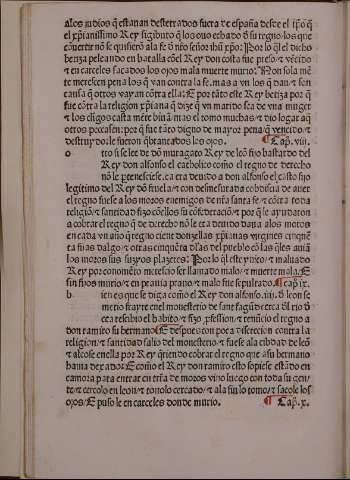 alos judios q̃ estauan desterrados fuera de españa desde el tp̃o q̃
el xp̃ianissimo Rey sigibuto q̃ los ouo echado d̃ su regno/los que
cõuertir nõ se quisierõ ala fe d̃ nr̃o señor ihũ xp̃o: Por lo q̃l el dicho
betiza peleando en batalla cõel Rey don costa fue preso/⁊ vẽcido
⁊ en carceles sacados los ojos mala muerte murio: Non sola mẽ
te merescen pena los q̃ van contra la fe. mas avn los q̃ dan/⁊ son
causa q̃ otros vayan cõtra ella: E por tãto este Rey betiza por q̃
fue cõtra la religion xp̃iana q̃ dize q̃ vn marido sea de vna muger
⁊ los cligos casta mẽte biuã mas el tomo muchas/⁊ dio logar aq̃
otros peccasen: por q̃ fue tãto digno de mayor pena/q̃ vencido/⁊
destruydo: le fueron q̃brantados los ojos. Cap̃. viii.
o tro si se lee de dõ muragato Rey de leõ fijo bastardo del
Rey don alfonso el catholico como el regno de derecho
nõ le ptenesciese. ca era deuido a don alfonso el casto fijo
legitimo del Rey dõ fruela/⁊ con desmesurada cobdicia de auer
el regno fuese a los moros enemigos de nr̃a santa fe/⁊ cõtra toda
religiõ/⁊ santidad fizo cõellos su cõfederaciõ/⁊ por q̃ le ayudaron
a cobrar el regno q̃ de derecho nõ le era deuido daua alos moros
en cada vn año q̃ regno ciento donzellas xp̃ianas virgines cinquẽ
ta fijas dalgo/⁊ otras cinquẽta dl̃as del pueblo cõ las q̃les auiã
los moros sus suzyos plazeres: Por lo q̃l este ynico/⁊ maluado
Rey por conomẽto meresçio ser llamado malo/⁊ muerte mala/E
sin fijos murio/⁊ en prauia prano/⁊ malo fue sepultado. cap̃. ix.
b ien es que se diga como el Rey don alfonso. iiii. d̃ leon se
metio frayre enel monesterio de sant fagũd cerca d̃l rio d̃
cea rescibio el habito/⁊ fizo pfession/⁊ renũcio el regno a
don ramiro su hermano. E despues con poca discrecion contra la
religion/⁊ santidad salio del monesterio/⁊ fuese ala cibdad de leõ
⁊ alcose enella por Rey q̃riendo cobrar el regno que a su hermano
hauia dexado. E como el Rey don ramiro esto sopiese estãdo en
çamora para entrar en trr̃a de moros vino luego con toda su gen
te/⁊ cercolo en leon/⁊ tomolo cercado/⁊ ala fin lo tomo/⁊ sacole los
ojos/E puso le en carceles donde murio. Cap̃. x.